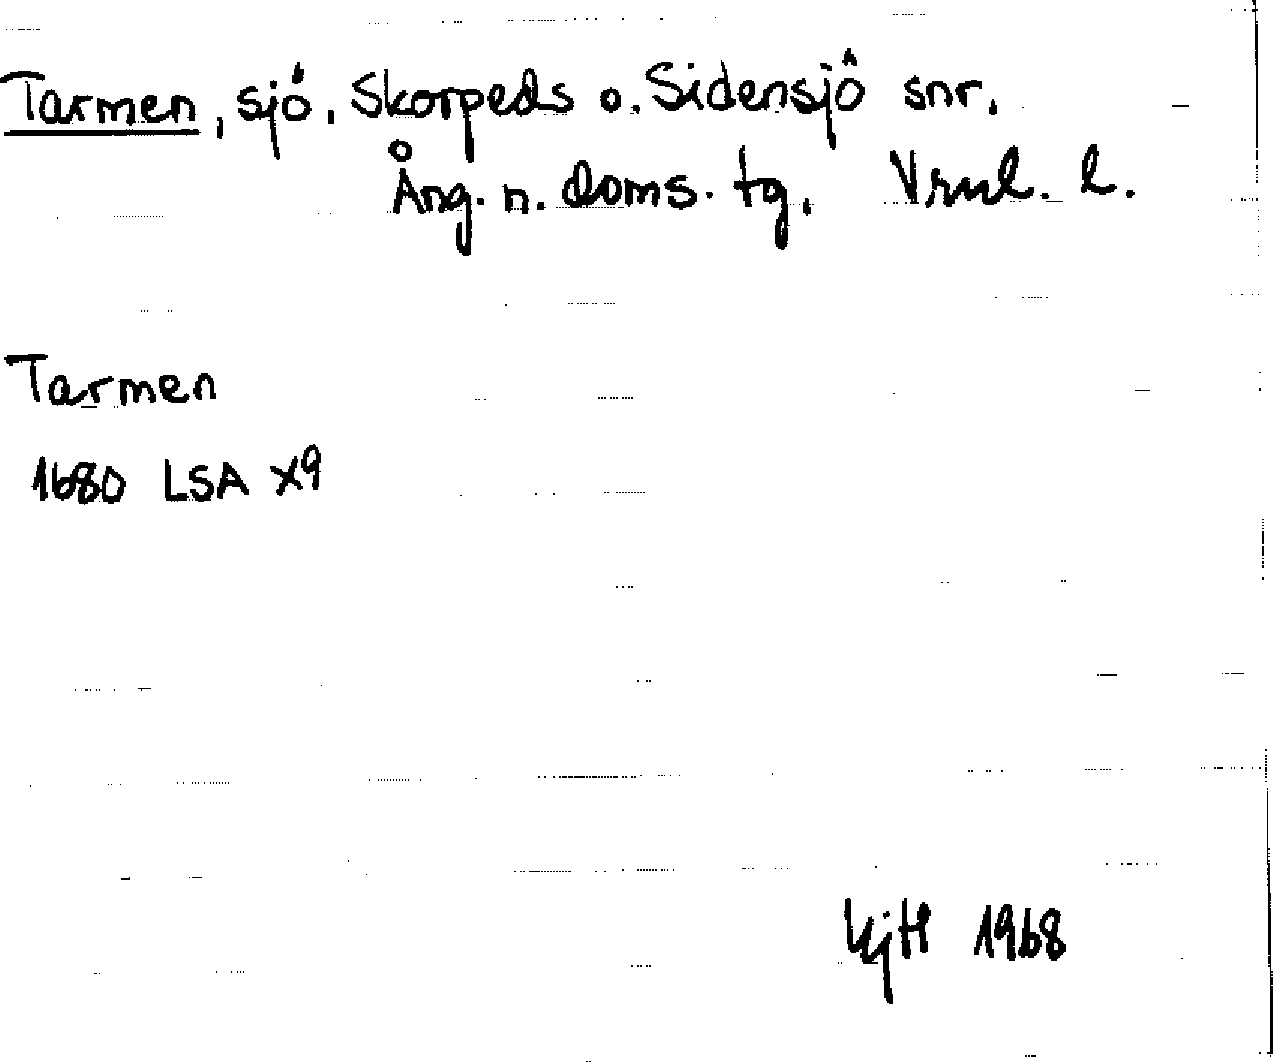 Tarmen, sjö. Skorpeds o. Sidensjö snr.
Ång. n. doms. tg. Vrnl. l.
Tarmen
1680 LSA X9
KjH 1968